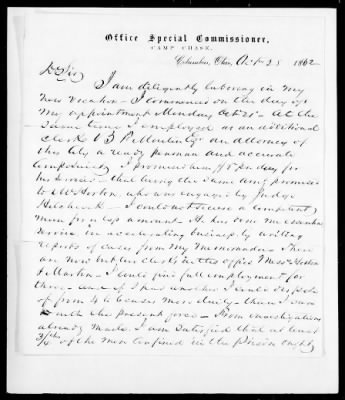 Office Special Commissioner,
CAMP CHASE,
Columbus, Ohio, Oct 28 1862
Dr Sir
I am diligently laboring in my
new vocation - I commenced on the day of
my appointment Monday Oct 21 - At the
same time I employed as an additional
clerk B P Martin Esq an attorney of
this City a ready penman and accurate
I promised him $5 per day for
his services - that being the same amt promised
to Mr Horton who was engaged by Judge
Hitchcock - I could not secure a competent
man for a less amount -
service in accelerating business by writing
reports of cases from my Memoranda - There
are now but two clerks in the office Messrs Horton
& Martin - I could find full employment for
three - and if I had another I could dispose
of from 4 to 6 cases more daily - than I can
with the present force - From investigations
already made I am satisfied that at least
3/4ths of the men confined in the Prison ought